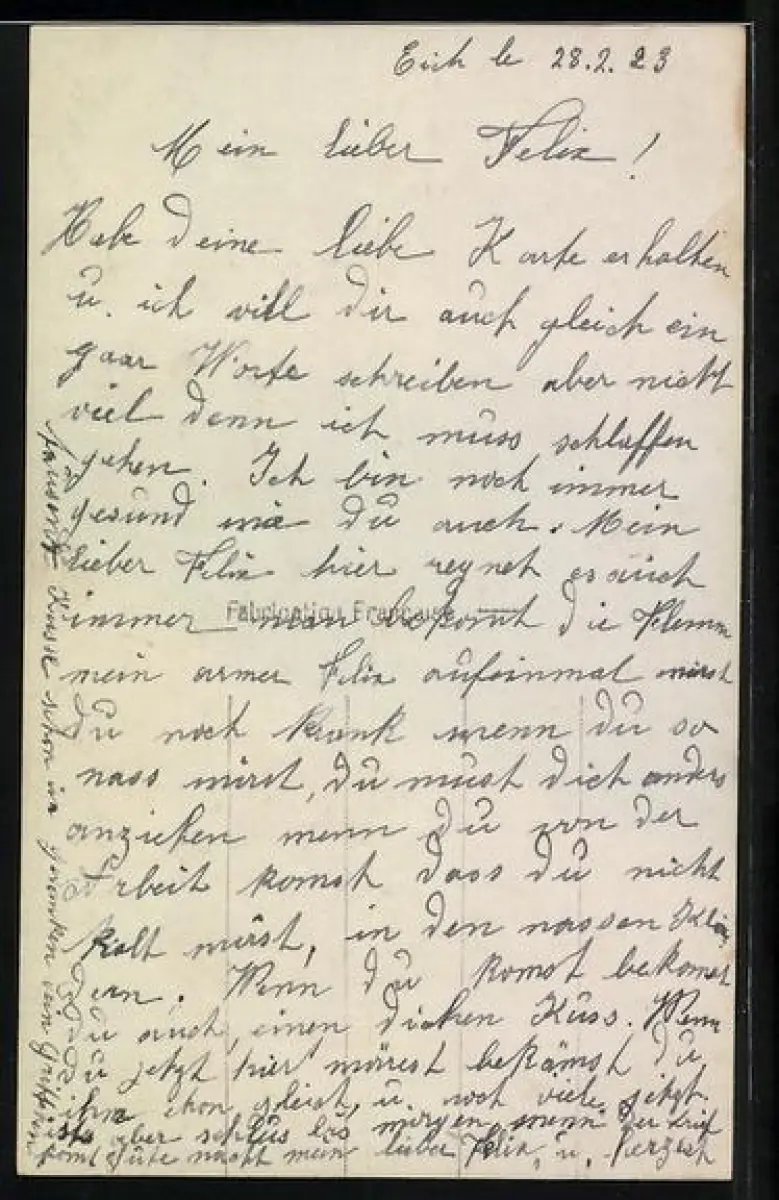 Eich le 28.2.23
Mein lieber Felix!
Habe deine liebe Karte erhalten
u. ich will dir auch gleich ein
paar Worte schreiben aber nicht
viel denn ich muss schlaffen
gehen. Ich bin noch immer
gesund wie du auch. Mein
lieber Felix hier regnet es auch
immer man bekomt die Flemm
mein armer Felix aufeinmal wirst
Du noch krank wenn du so
nass wirst, du must dich anders
anziehen wenn du von der
Arbeit komst dass du nicht
kalt wirst, in den nassen Klei
dern. Wenn du komst bekomst
du auch einen dicken Küss. Wenn
du jetzt hier wärest bekämst du
ihn schon gleich, u. noch viele jetzt
ists aber schlus bis morgen, wenn der brief
komt gute nacht mein lieber Felix, u.
tausend Küsse schon in gedanken dein
Fabrication Française